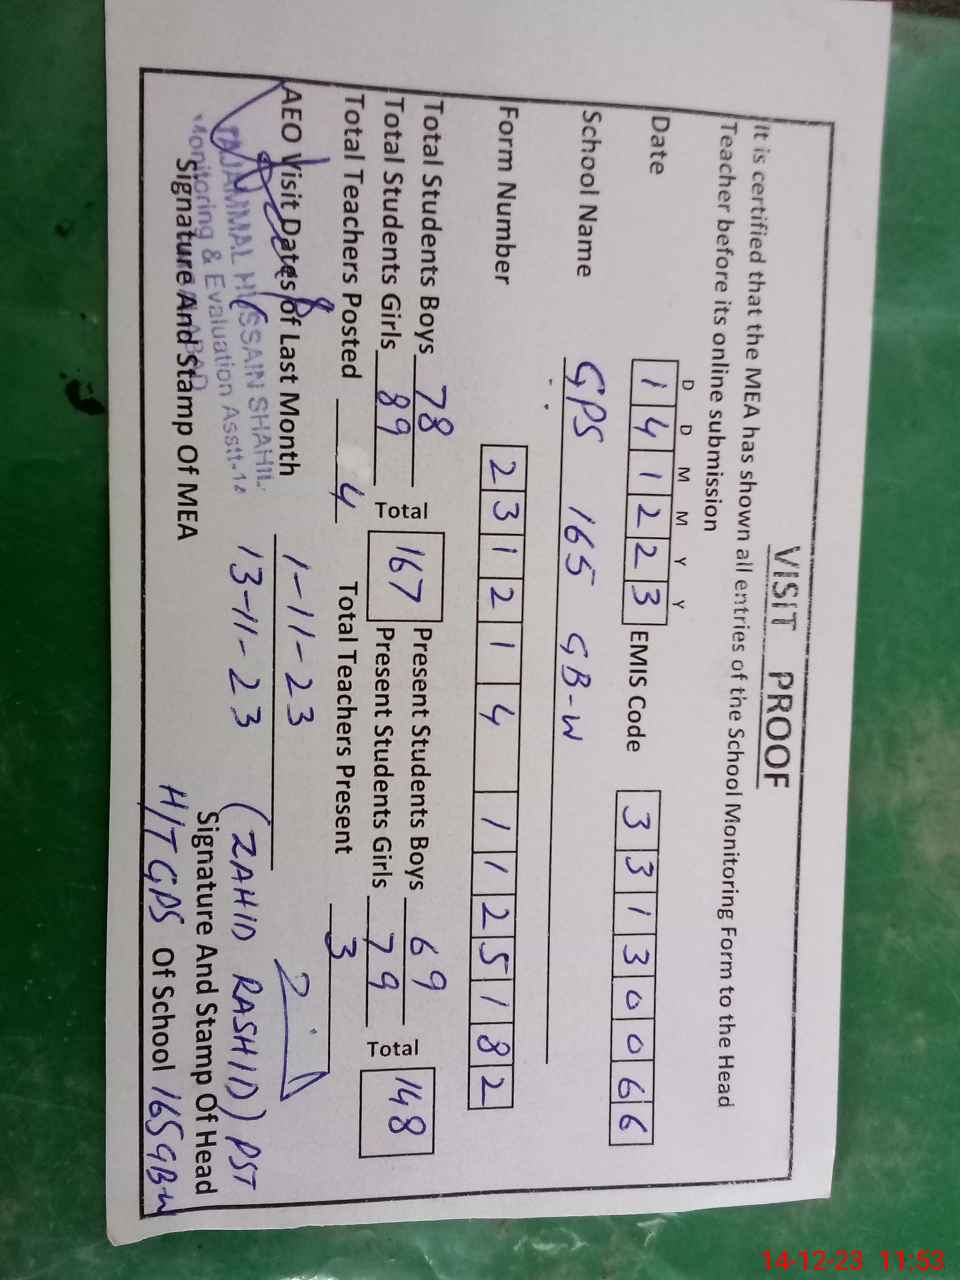 VISIT PROOF
It is certified that the MEA has shown all entries of the School Monitoring Form to the Head
Teacher before its online submission
D D M M Y Y
Date 1 4 1 2 2 3 EMIS Code 3 3 1 3 0 0 6 6
School Name GPS 165 GB-W
Form Number 2 3 1 2 1 4 1 1 2 5 1 8 2
Total Students Boys 78 Total 167 Present Students Boys 69 Total 148
Total Students Girls 89 Present Students Girls 79
Total Teachers Posted 4 Total Teachers Present 3
AEO Visit Dates of Last Month 1-11-23
13-11-23
TAJAMMAL HUSSAIN SHAHI
Monitoring & Evaluation Asstt-14
ABAD
Signature And Stamp Of MEA
(ZAHID RASHID) PST
Signature And Stamp Of Head
H/T GPS Of School 165 GB-W
14-12-23 11:53